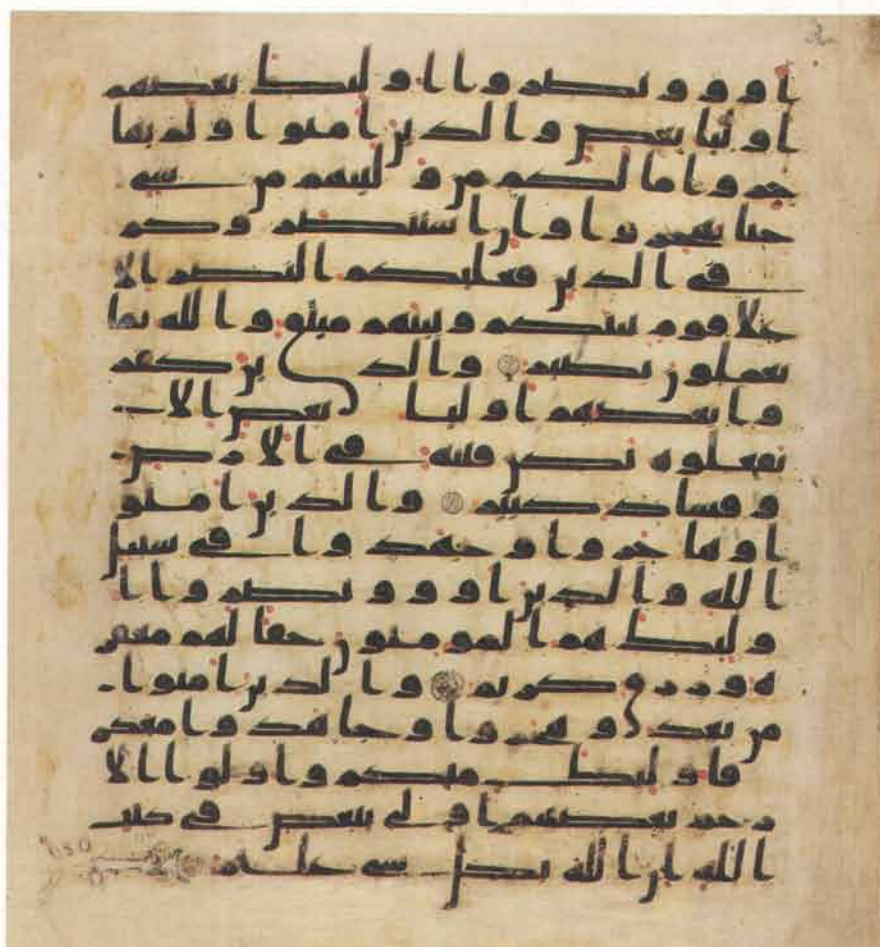 اووا ونصروا اوليك بعضهم
اوليا بعض والذين امنوا ولم يها
جروا ما لكم من وليتهم من شى
حتا يهجروا وان استنصروكم
فى الدين فعليكم النصر الا
علا قوم بينكم وبينهم ميثق والله بما
تعملون بصير والذين كفر
وا بعضهم اوليا بعض الا
تفعلوه تكن فتنه فى الارض
وفساد كبير والذين امنو
ا وهاجروا وجهدوا فى سبيل
الله والذين اووا ونصروا ا
وليك هم المومنون حقا لهم مغفر
ه ورزق كريم والذين امنوا
من بعد وهجروا وجاهدوا معكم
فاوليك منكم واولوا الا
رحم بعضهم اولى ببعض فى كتب
الله ان الله بكل شى عليم